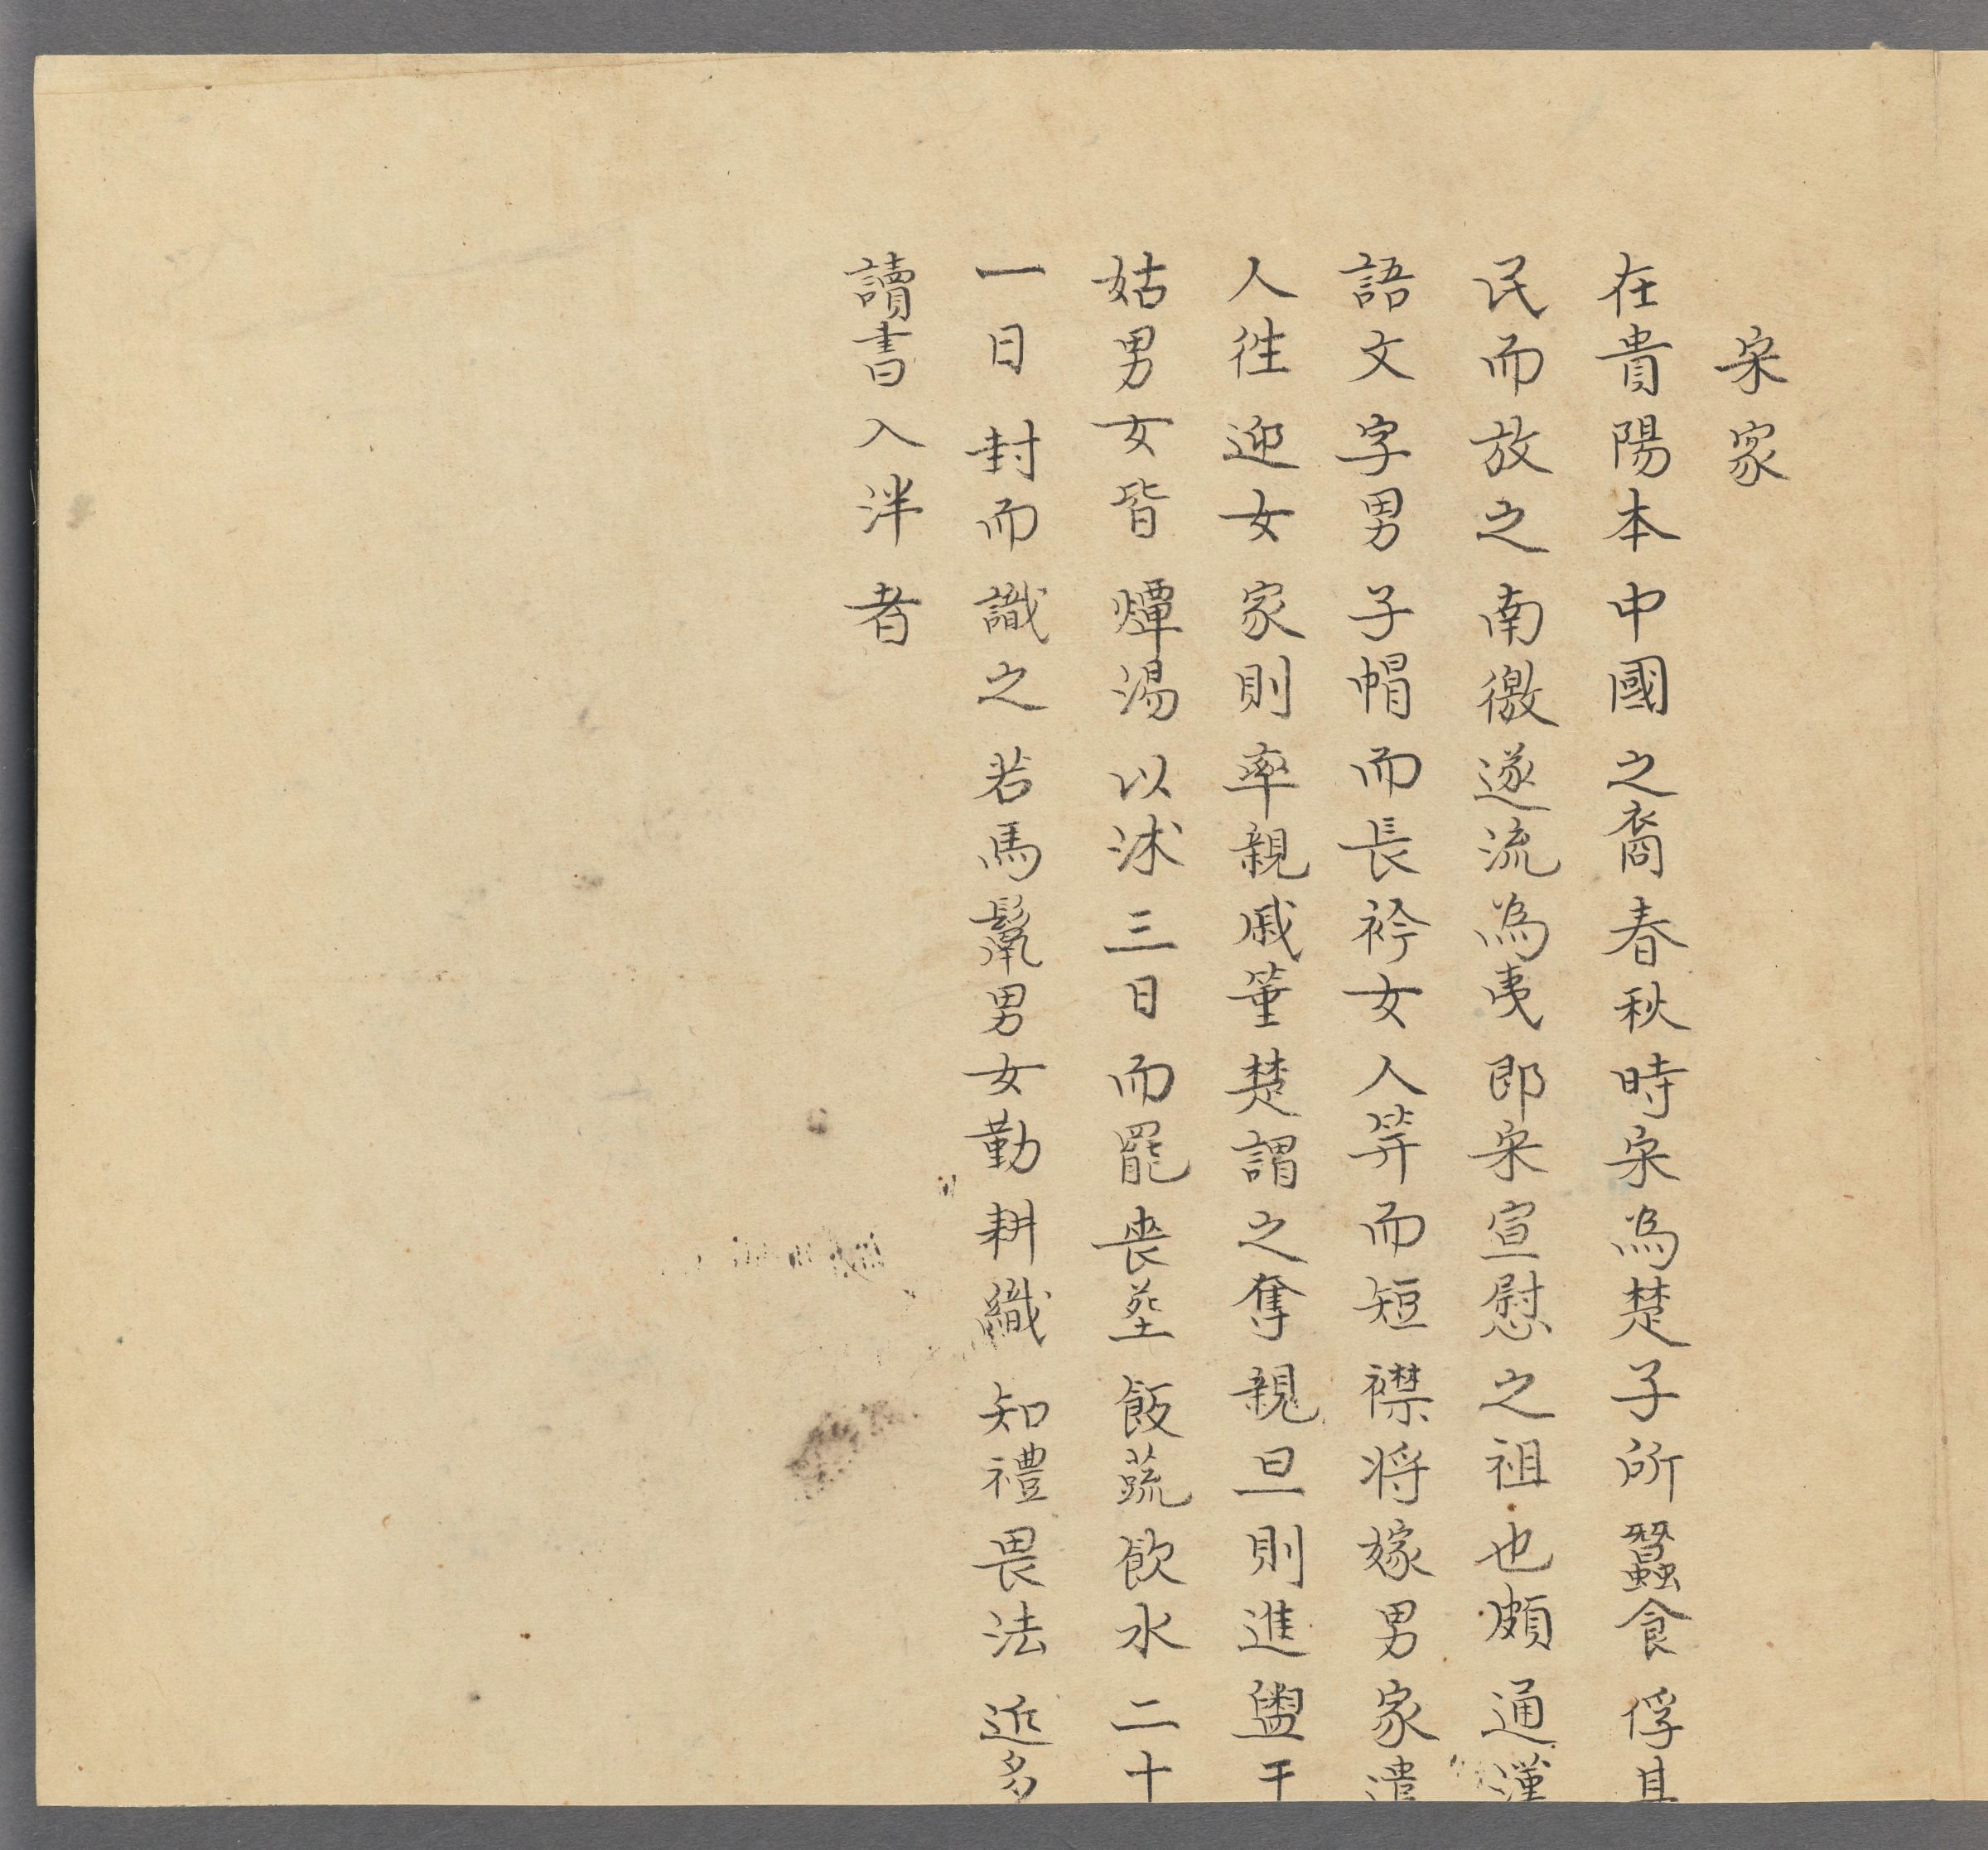 宋家
在貴陽本中國之裔春秋時宋為楚子所蠶食俘其
民而放之南徼遂流為夷即宋宣慰之祖也頗通漢
語文字男子帽而長衿女人笄而短襟将嫁男家遣
人往迎女家則率親戚箠楚謂之奪親旦則進盥于
姑男女皆燂湯以沐三日而罷喪塟飯蔬飲水二十
一日封而識之若馬鬛男女勤耕織知禮畏法近多
讀書入泮者